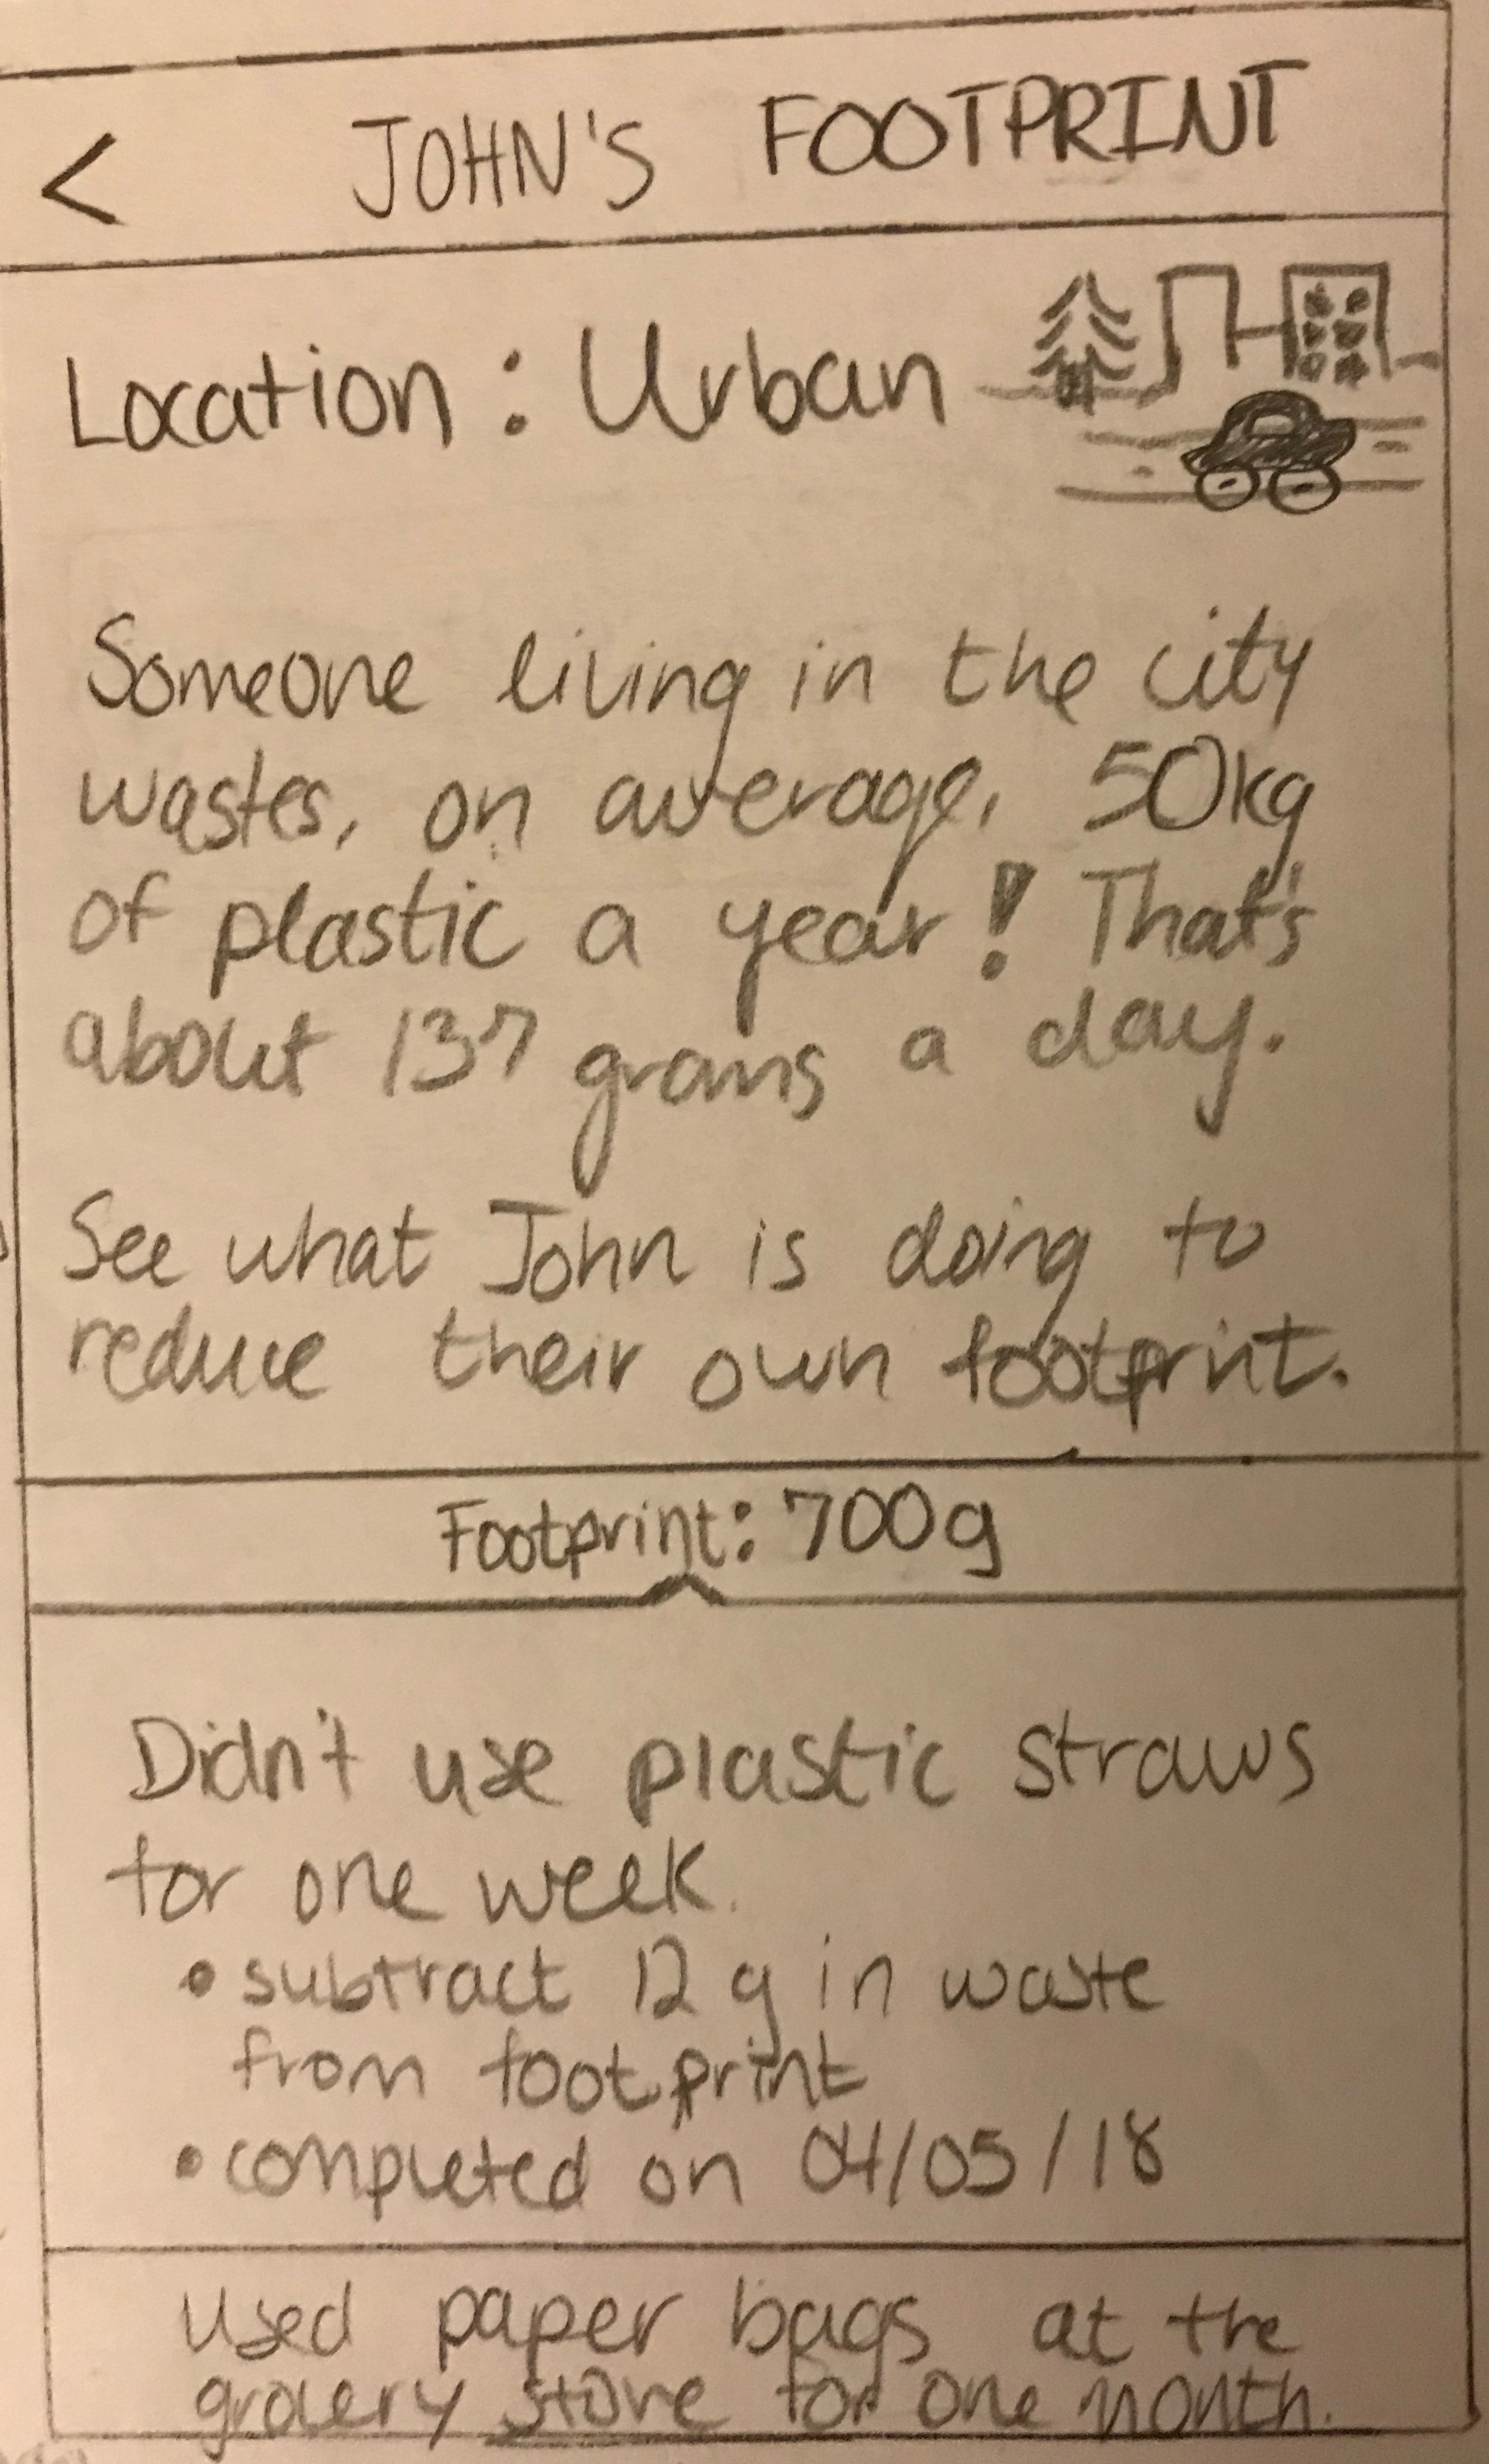 < JOHN'S FOOTPRINT
Location : Urban
Someone living in the city
wastes, on average, 50kg
of plastic a year! That's
about 137 grams a day.
See what John is doing to
reduce their own footprint.
Footprint: 700g
Didn't use plastic straws
for one week.
• subtract 12 g in waste
from footprint
• completed on 04/05/18
Used paper bags at the
grocery store for one month.